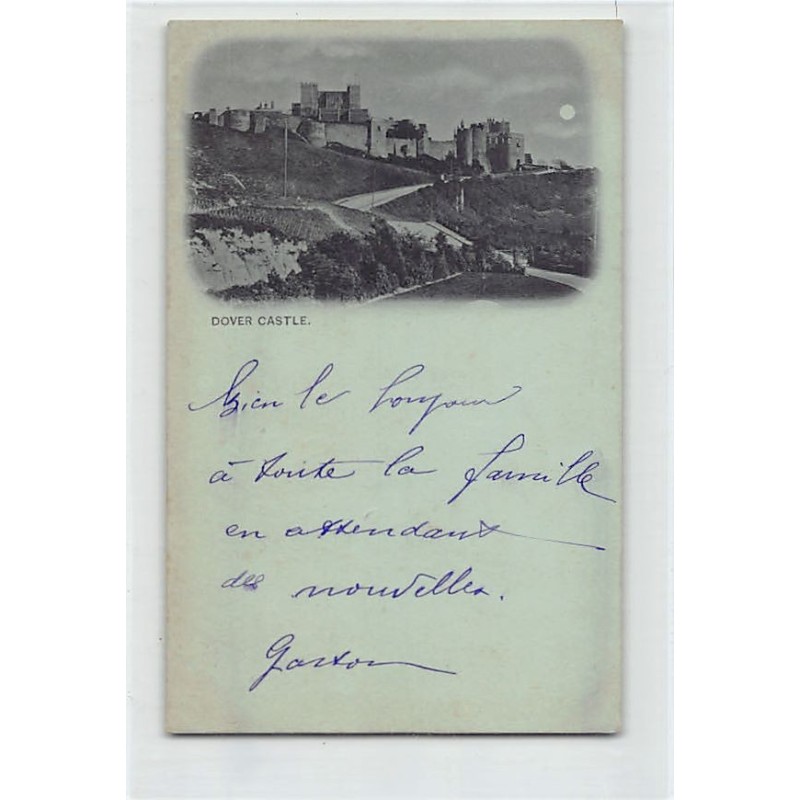 DOVER CASTLE.
Bien le bonjour
à toute la famille
en attendant
des nouvelles.
Gaston